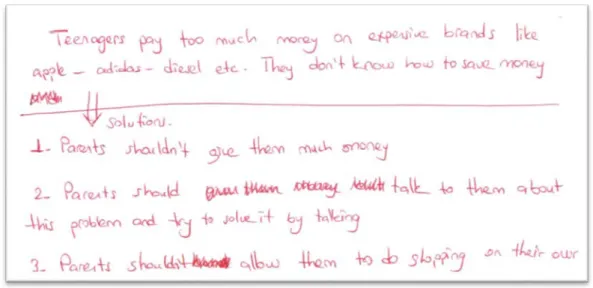 Teenagers pay too much money on expensive brands like
apple - adidas - diesel etc. They don't know how to save money
solution.
1- Parents shouldn't give them much money
2- Parents should talk to them about
this problem and try to solve it by talking
3- Parents shouldn't allow them to do shopping on their own